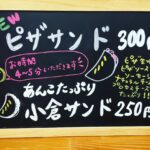 NEW
ピザサンド 300円
お時間
4〜5分いただきます
あんこたっぷり
小倉サンド 250円